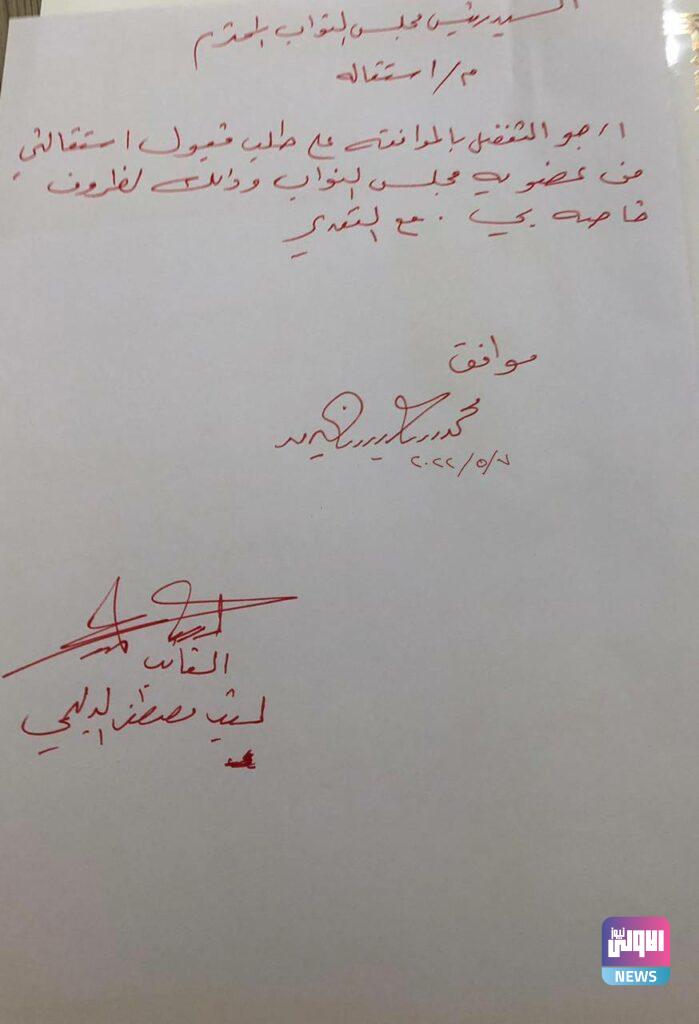 السيد رئيس مجلس النواب المحترم
م/ استقاله
ارجو التفضل بالموافقه على طلب قبول استقالتي
من عضويه مجلس النواب وذالك لظروف
خاصه بي . مع التقدير
موافق
محمد
٢٠٢٢/٥/٧
النائب
ليث مصطفى الدليمي
الاولى نيوز
NEWS